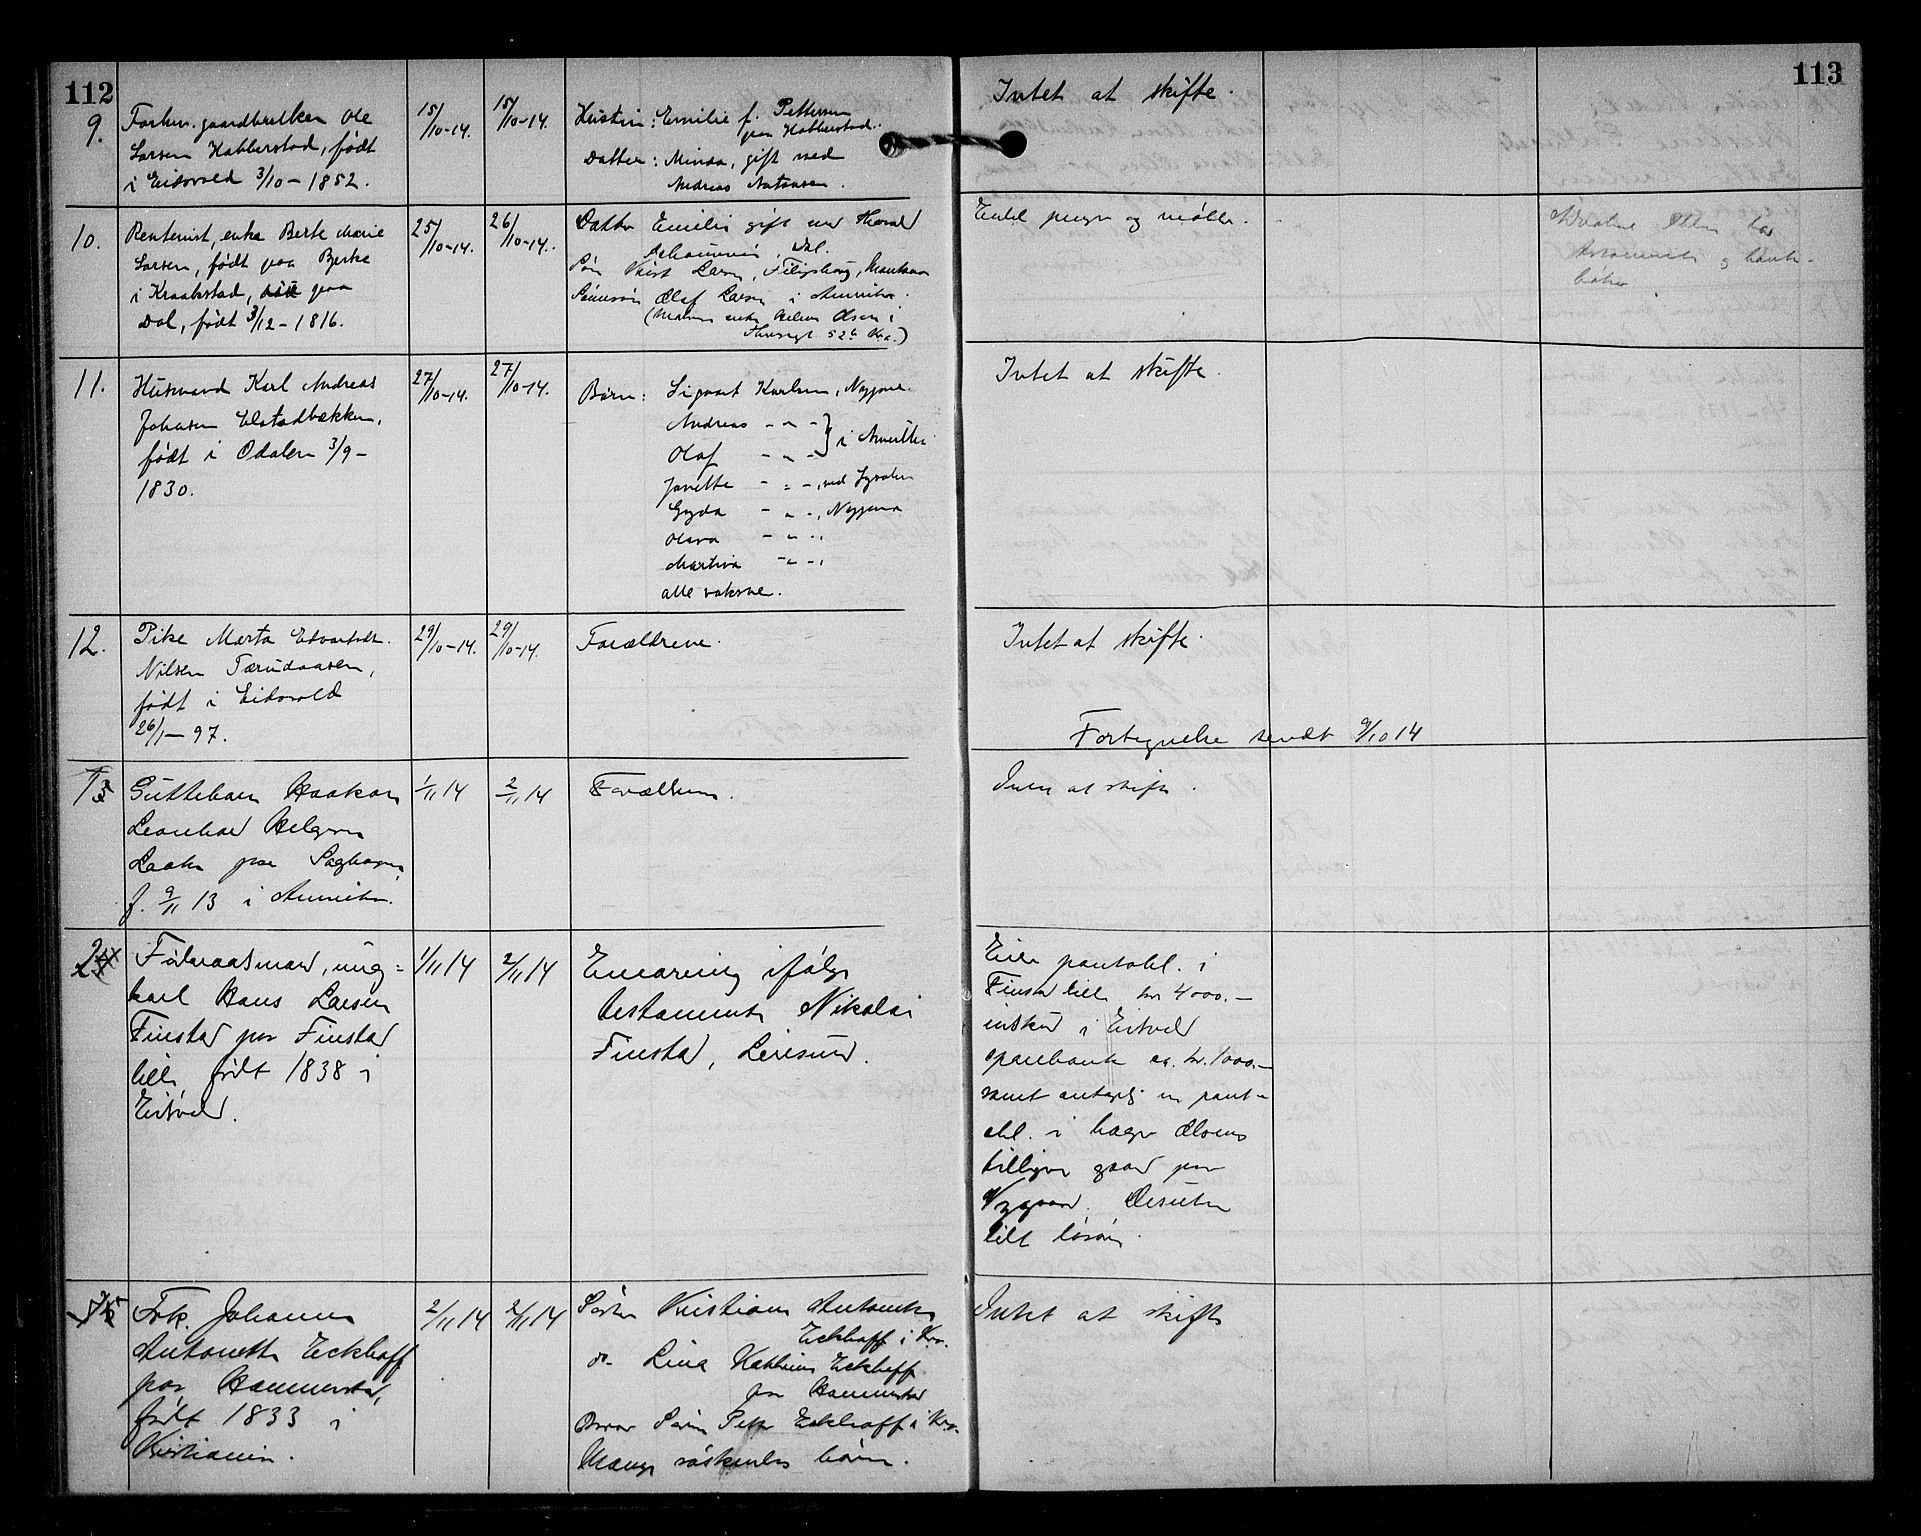 112
9.
Forhen. gaardbruker Ole
Larsen Habberstad, født
i Eidsvold 3/10 - 1852.
15/10-14.
15/10-14.
Hustru: Emilie f. Pettersen
paa Habberstad.
Datter: Minda, gift med
Andreas
10.
Rentenist, enke Berte Marie
Larsen, født paa Berke
i Kraakstad, paa
Dal, født 3/12 - 1816.
25/10-14.
26/10-14.
Datter Emilie gift med Harald
Johannesen, Dal.
Søn Larsen,
Sønnesøn Olaf Larsen i Amerika.
enke Helene Olsen i
52 Kra.)
11.
Husmand Karl Andreas
Johansen Elstadbakken,
født i Odalen 3/9 -
1830.
27/10-14.
27/10-14.
Børn: Sigvart Karlsen, Nygjova.
Andreas - " -
Olaf - " - } i Amerika
Janette - " -, ved
Gyda - " -, Nygjova
Olava - " -,
Martina - " -,
alle voksne.
12.
Pike Marta Edvardsdt.
Nilsen Tærudaasen,
født i Eidsvold
26/1 - 97.
29/10-14.
29/10-14.
Forældrene.
13
Guttebarn Haakon
Leonhard Helgesen
Laake paa Saghagen,
f. 9/11 13 i Amerika.
1/11 14
2/11 14
Forældrene.
2
Føderaadsmand, ung-
karl Hans Larsen
Finstad paa Finstad
lille, født 1838 i
Eidsvold.
1/11 14
2/11 14
Enearving ifølge
testamente Nikolai
Finstad, Leirsund.
Frk. Johanne
Antonette Eckhoff
paa Hammerstad,
født 1833 i
Kristiania.
2/11 14
2/11 14
Søster Kristiane Antonette
Eckhoff i Kra.
do Lina Kathrine Eckhoff
paa Hammerstad
Broror Søren Peter Eckhoff i Kra.
Mange søskendes børn.
113
Intet at skifte.
Endel penger og møbler.
Olsen har
testamente og bank-
bøker
Intet at skifte.
Intet at skifte.
Fortegnelse sendt 9/10 14
Intet at skifte.
Eier pantobl. i
Finstad lille kr 4000.-
indskud i Eidsvold
sparebank ca. kr. 1000.-
samt antagelig en pant-
obl. i Olsens
tidligere gaard paa
Nygaard. Desuten
litt løsøre.
Intet at skifte